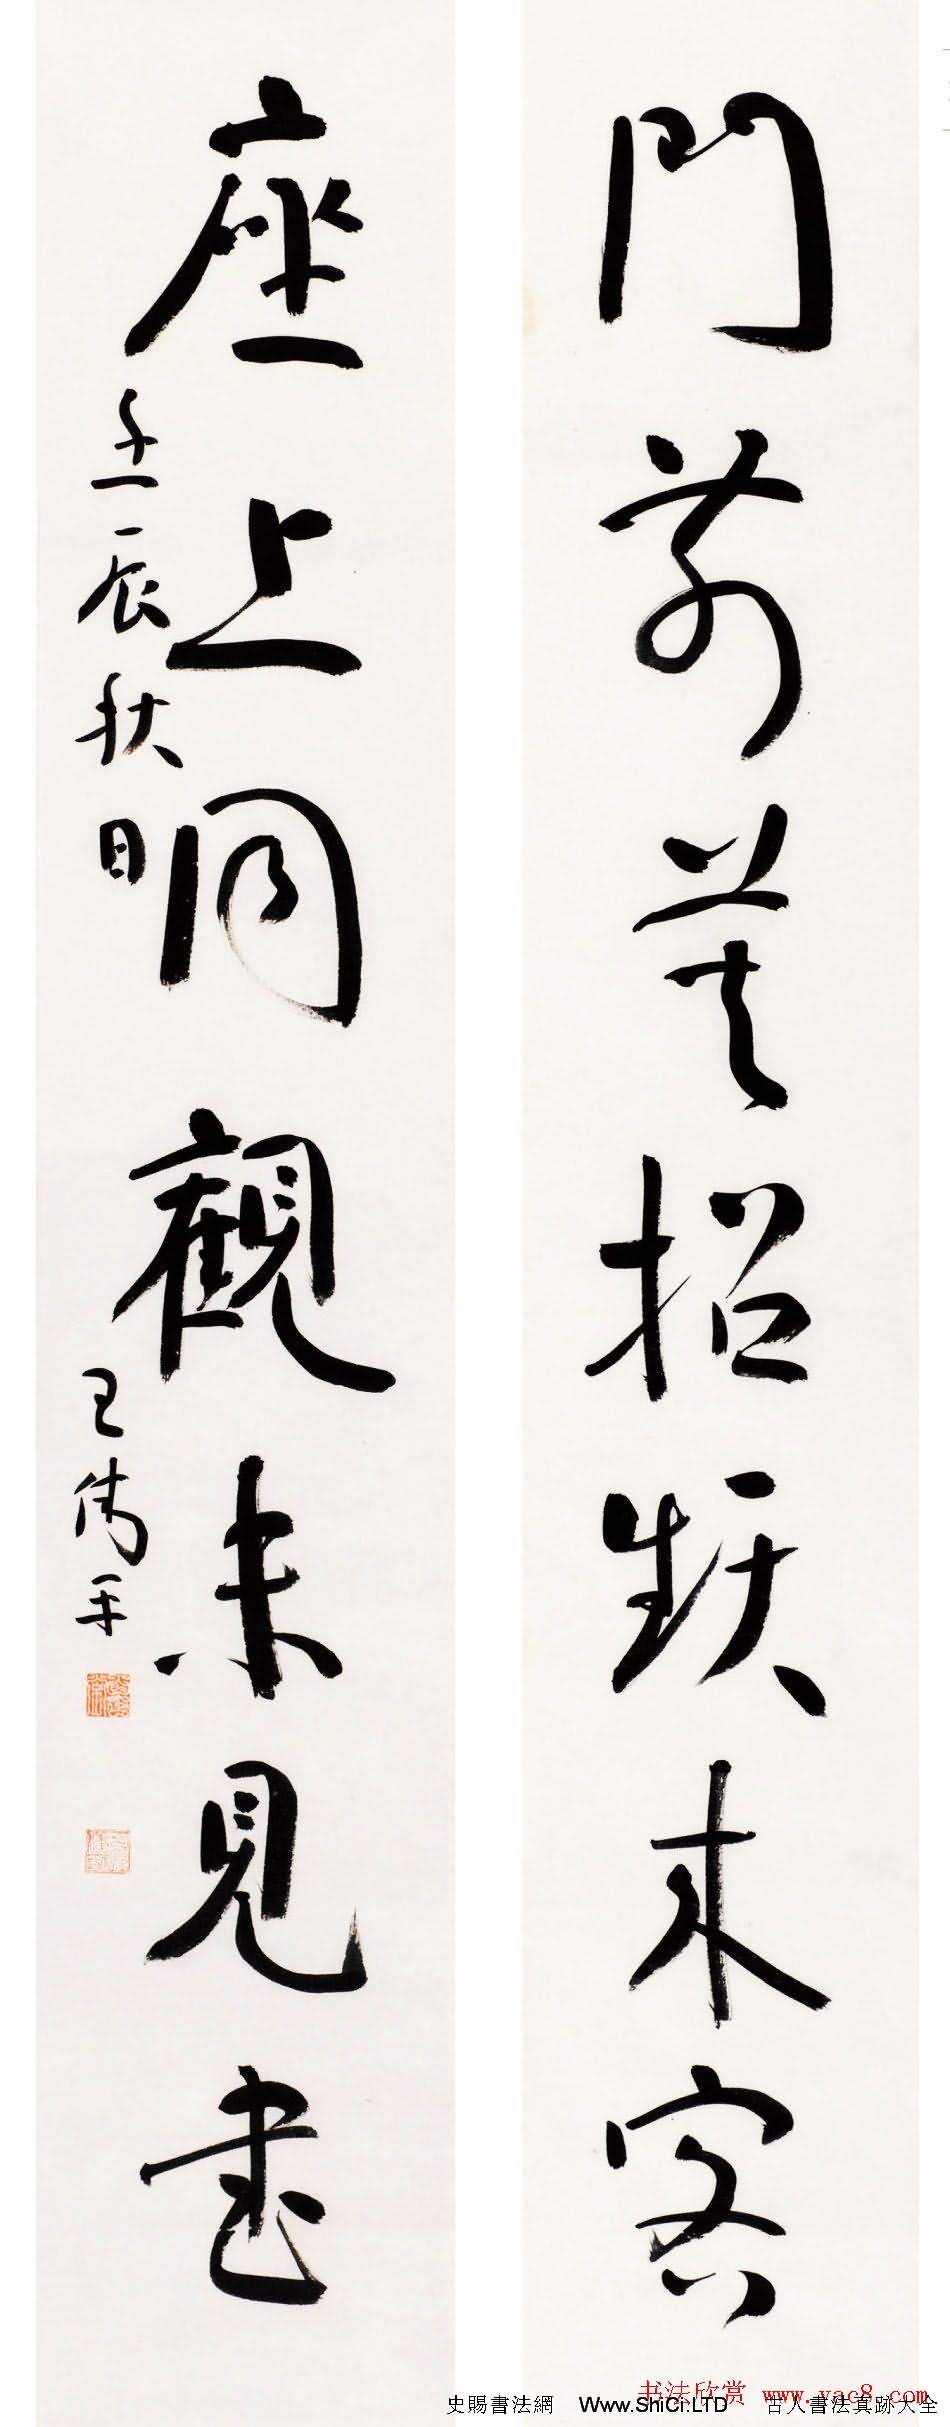 門前莫招頻來客
座上同觀未見書
壬辰秋日
王偉平
书法欣赏 www.yac8.com
史賜書法網 Www.ShiCi.LTD 古人書法真跡大全